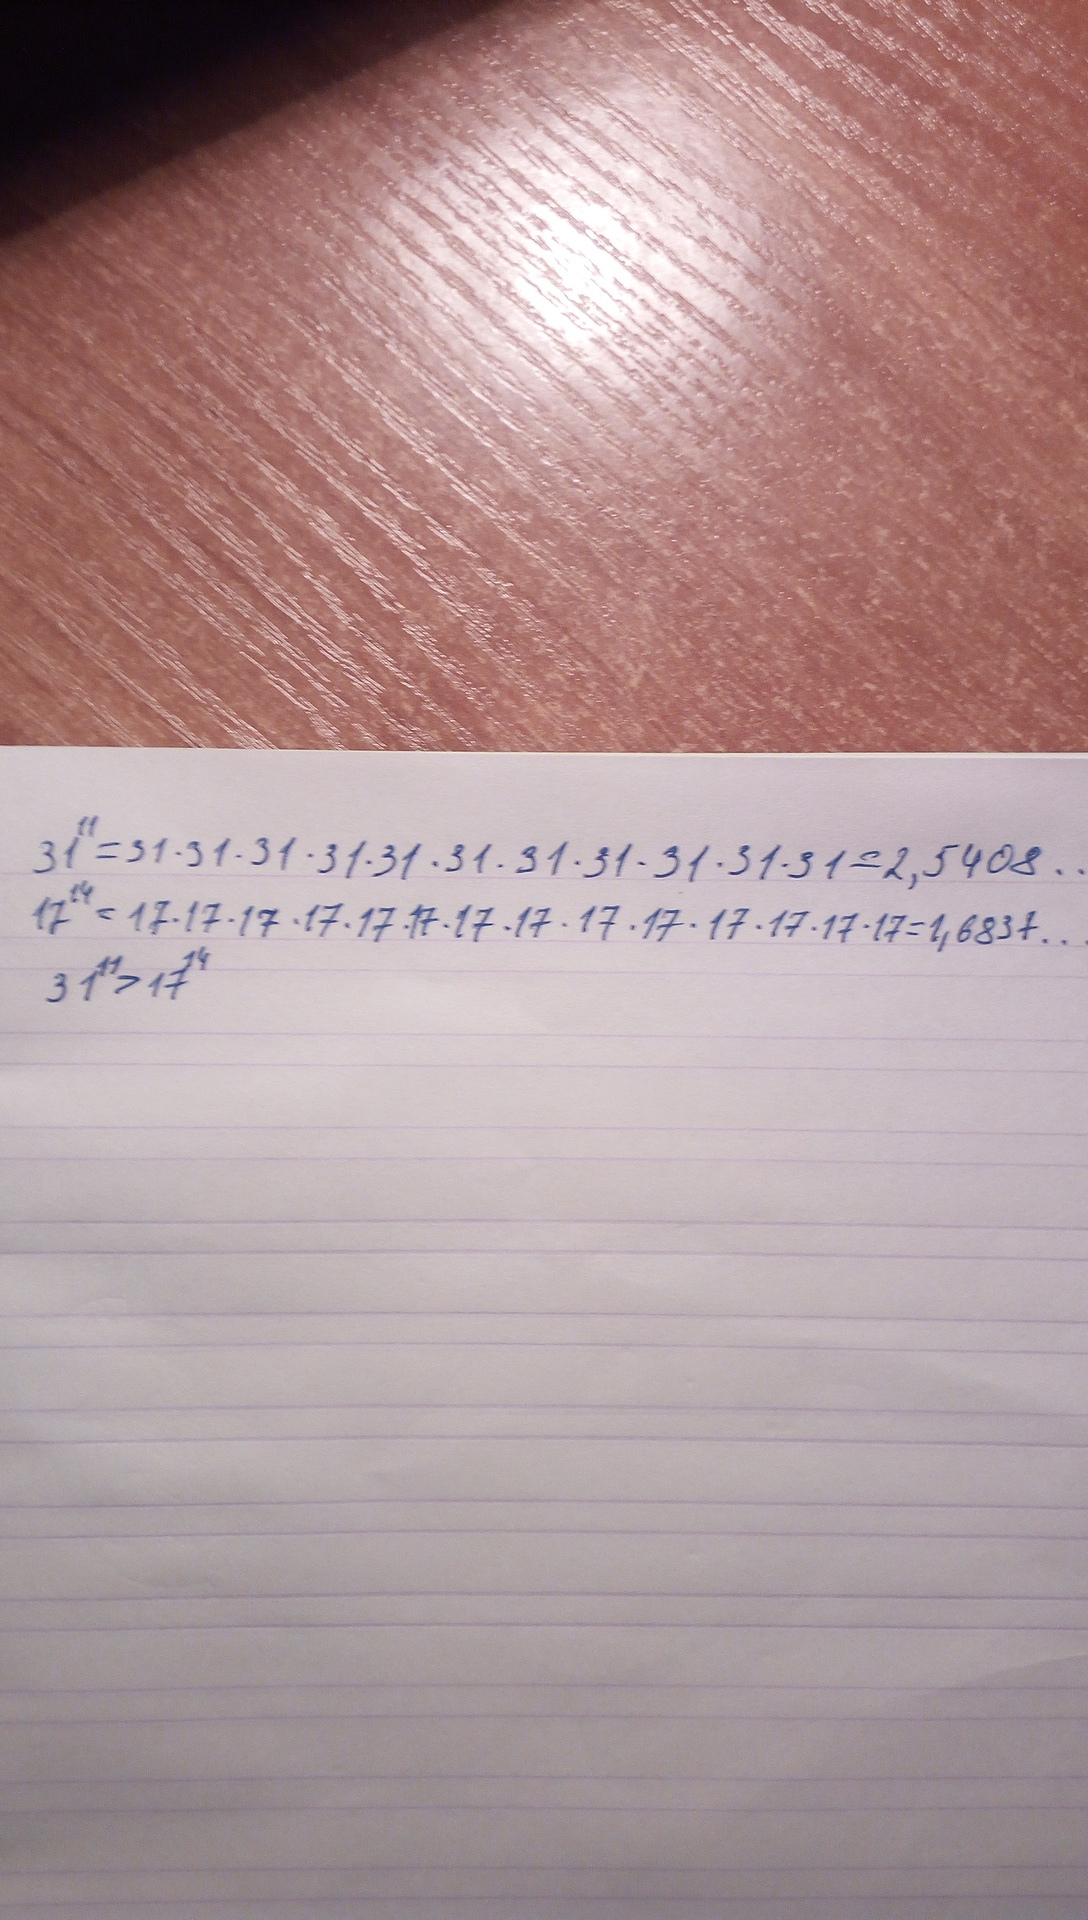 31¹¹=31·31·31·31·31·31·31·31·31·31·31=2,5408..
17¹⁴=17·17·17·17·17·17·17·17·17·17·17·17·17·17=1,6837...
31¹¹>17¹⁴